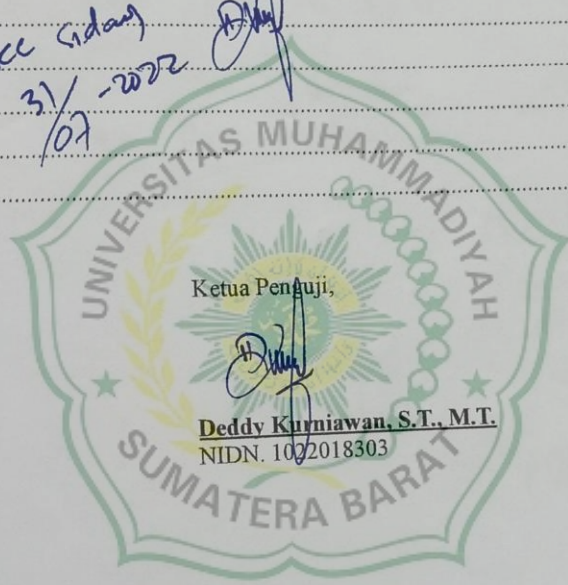 cc sidang
31/07 -2022
UNIVERSITAS MUHAMMADIYAH
Ketua Penguji,
Deddy Kurniawan, S.T., M.T.
NIDN. 1022018303
SUMATERA BARAT